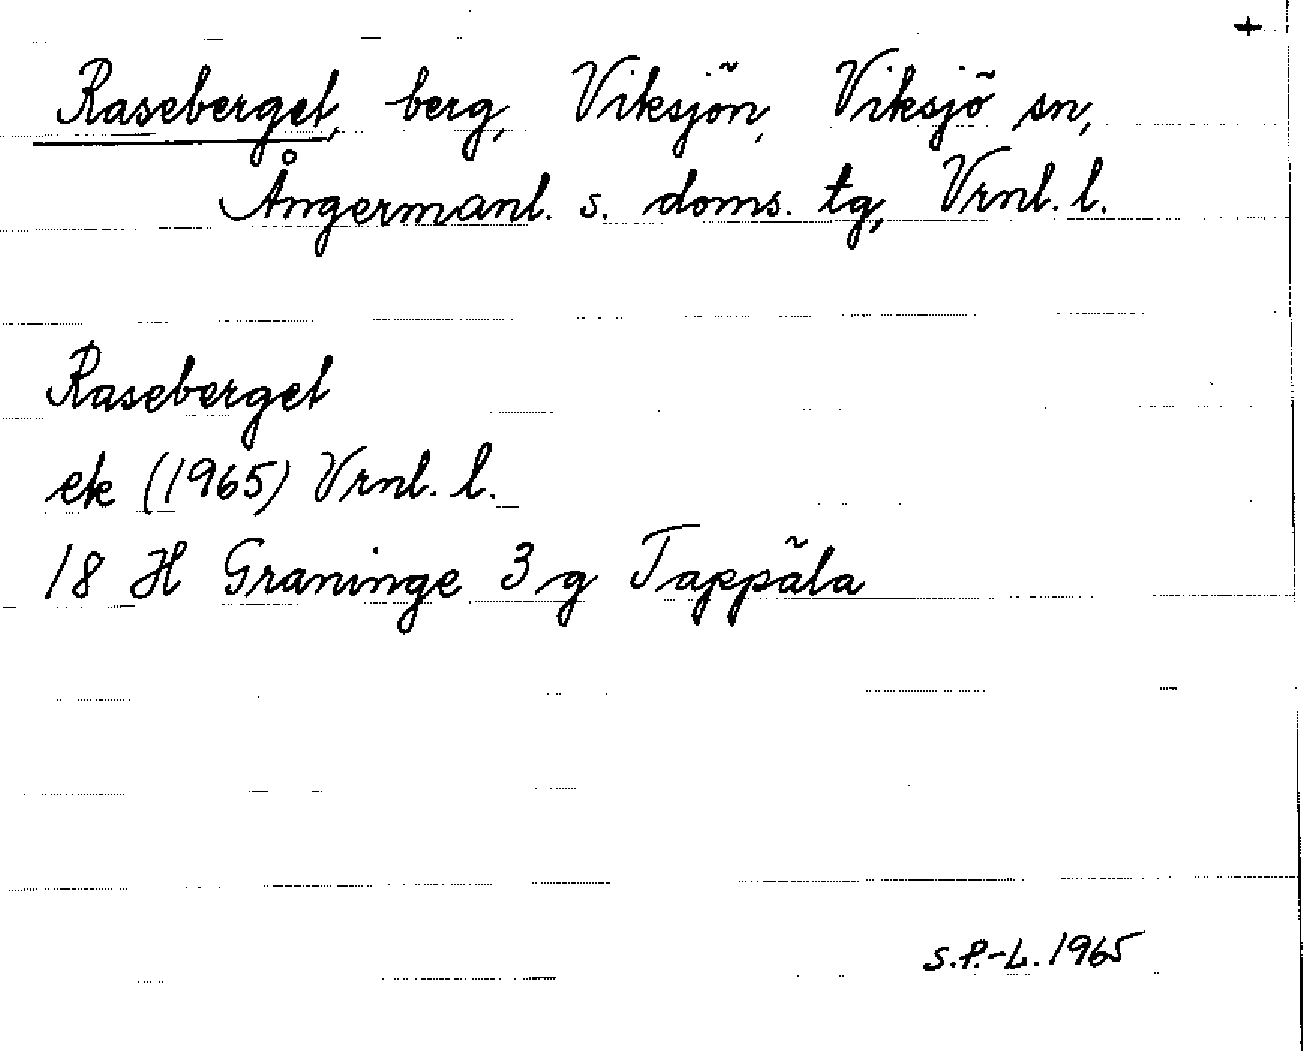 +
Raseberget, berg, Viksjön, Viksjö sn,
Ångermanl. s. doms. tg, Vrnl. l.
Raseberget
ek (1965) Vrnl. l.
18 H Graninge 3 g Tappåla
S.P.-L. 1965